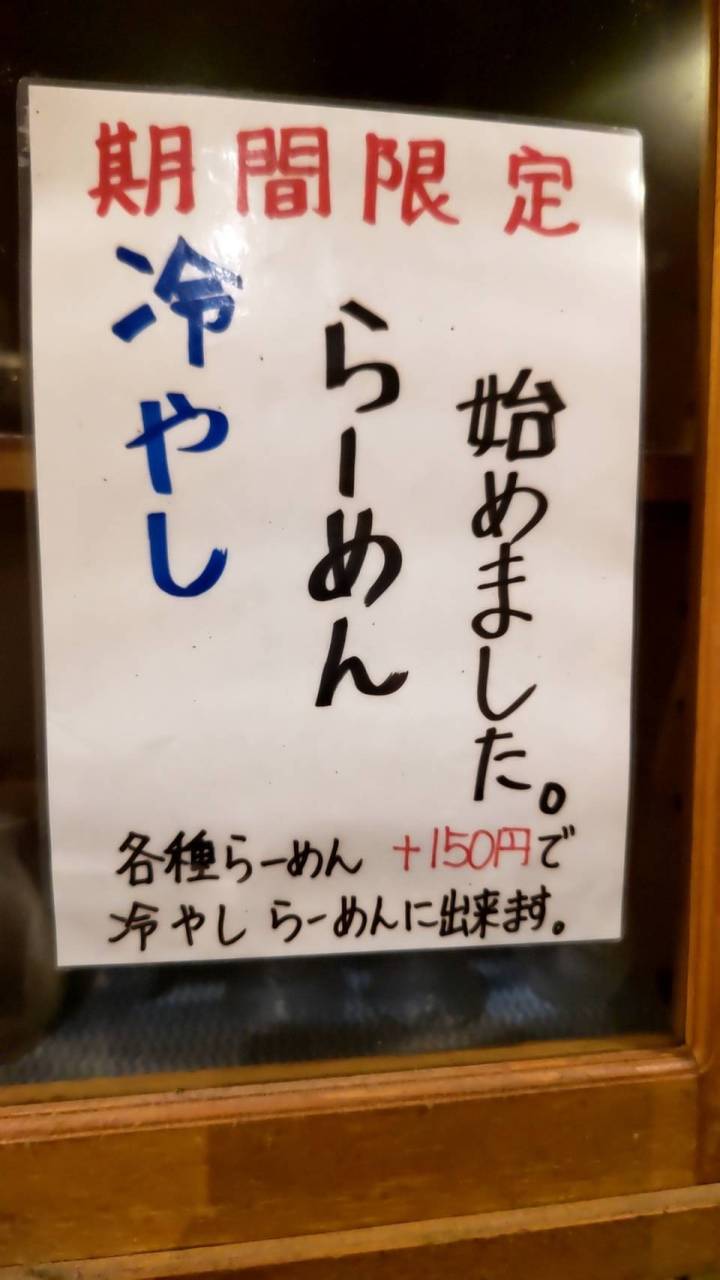 期間限定
冷やし
らーめん
始めました。
各種らーめん +150円で
冷やし らーめんに出来ます。